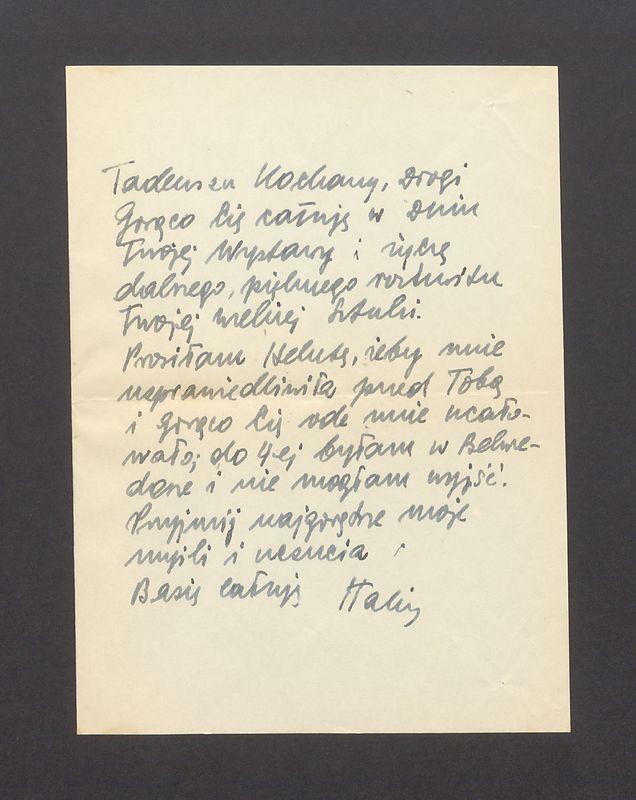 Tadeuszu Kochany, Drogi
Gorąco Cię całuję w Dniu
Twojej Wystawy i życzę
dalszego, pięknego rozkwitu
Twojej wielkiej Sztuki.
Prosiłam Helutę, żeby mnie
usprawiedliwiła przed Tobą
i gorąco Cię ode mnie ucało-
wała; do 4-ej byłam w Belwe-
derze i nie mogłam wyjść.
Przyjmij najgorętsze moje
myśli i uczucia
Basię całuję